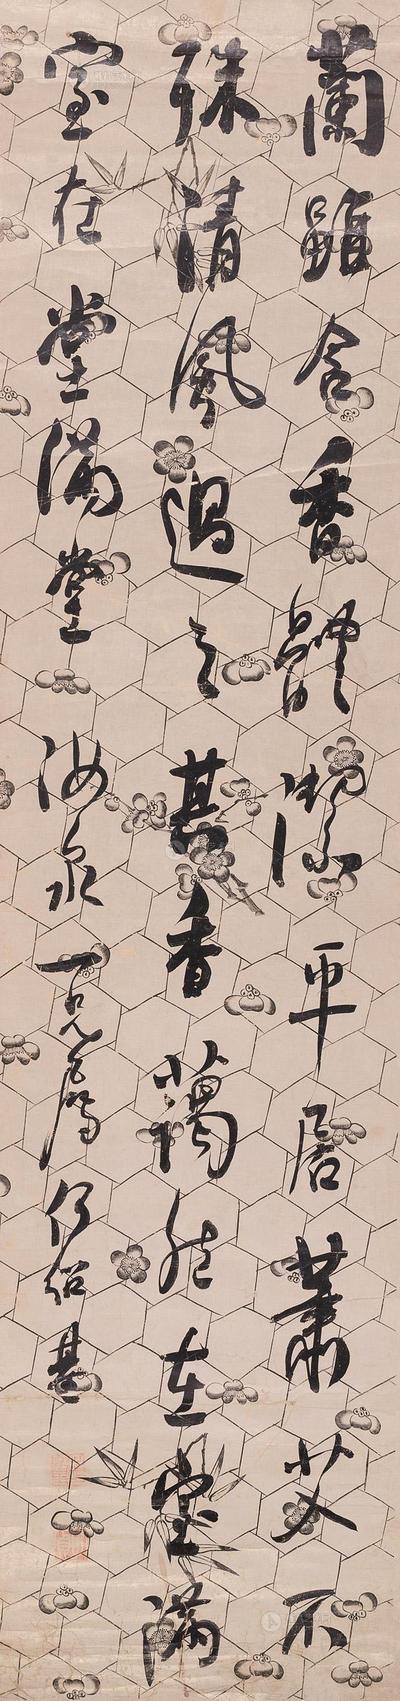 蘭雖含香體潔平居蕭艾不
殊清風過之其香藹然在室滿
室在堂滿堂 汝泉一兄屬 何紹基